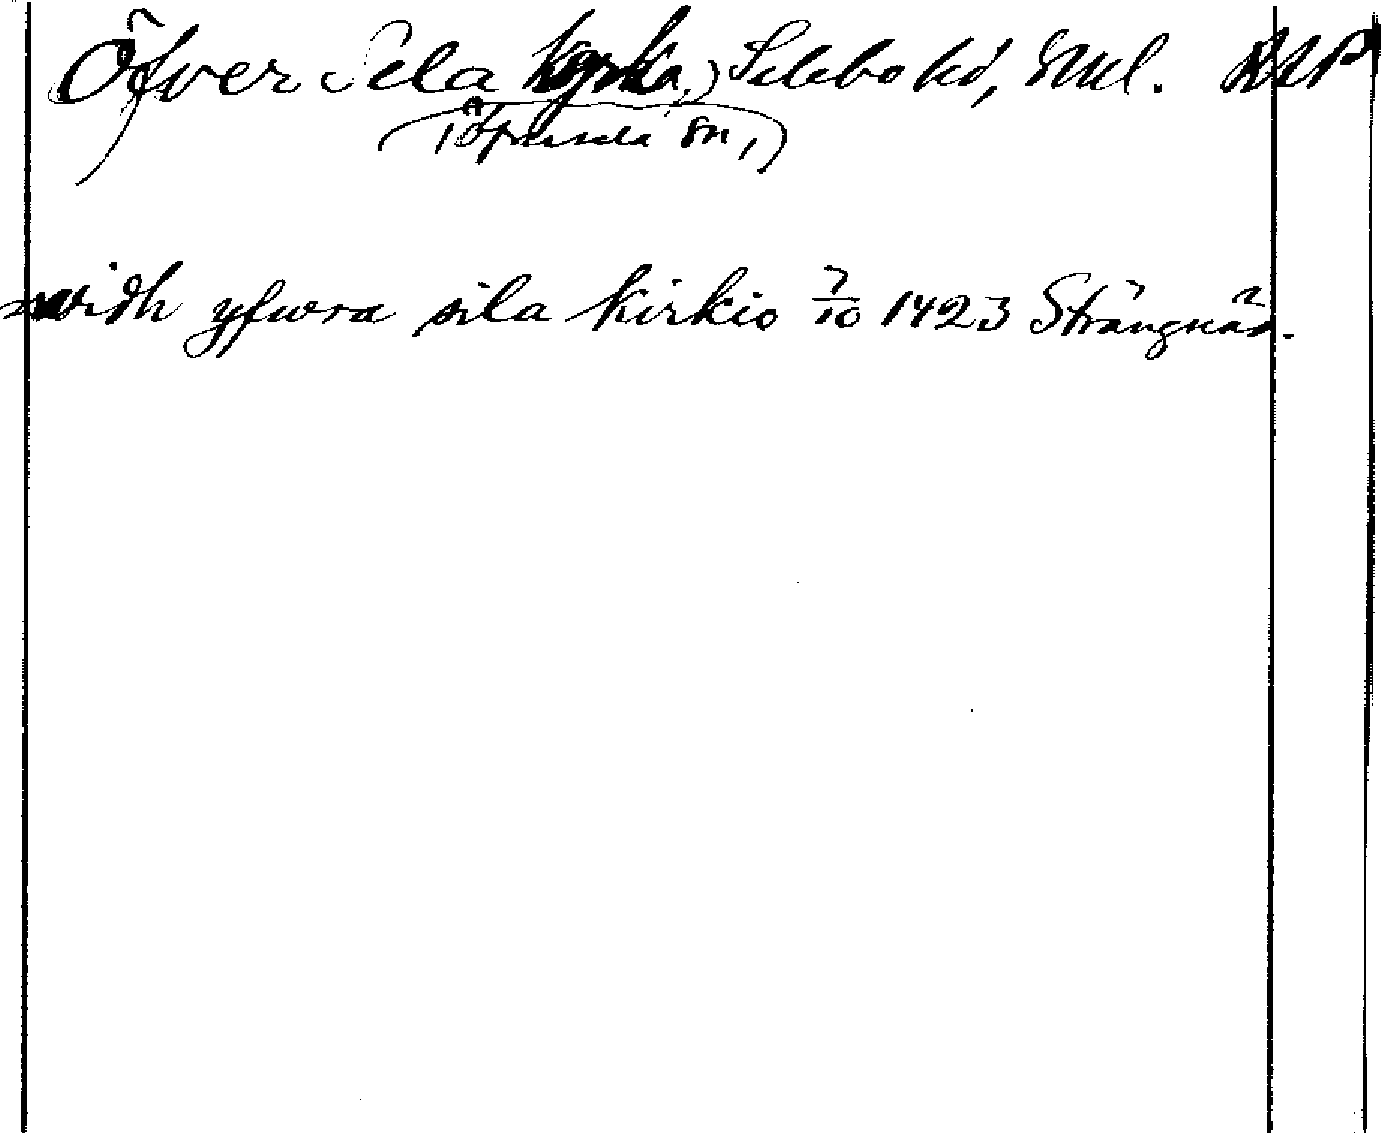 Öfver Sela kyrka, Selebo hd, Sml. RAP
(Öfversela sn,)
widh yfwra sila kirkio 7/10 1423 Strängnäs.